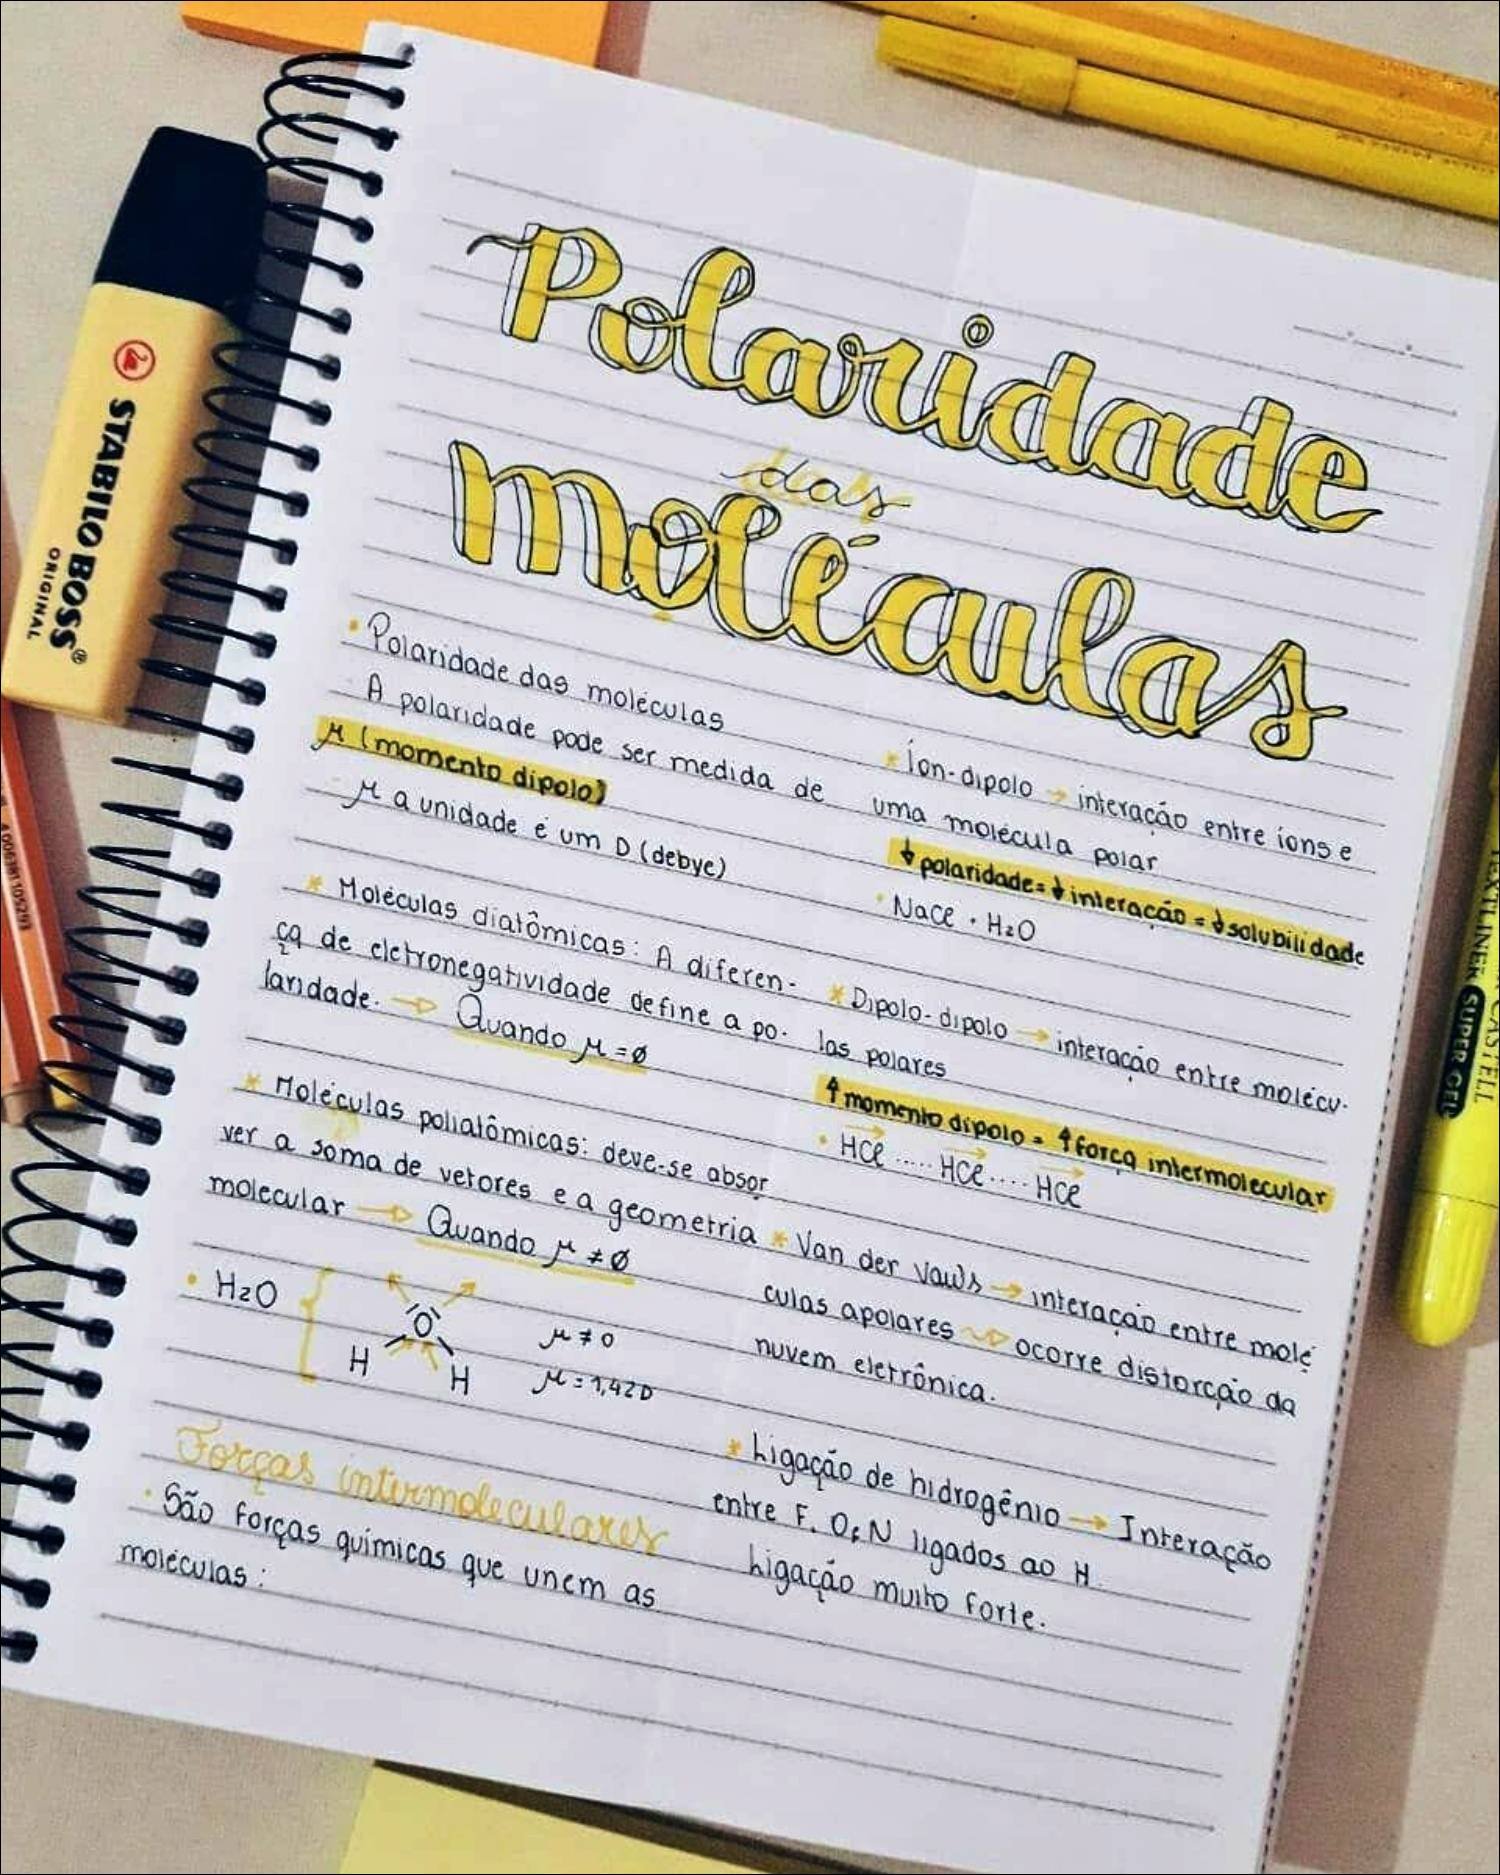 Polaridade
das
moléculas
• Polaridade das moléculas
A polaridade pode ser medida de
μ (momento dipolo)
μ a unidade é um D (debye)
* Moléculas diatômicas: A diferen-
ça de eletronegatividade define a po-
laridade. → Quando μ = ∅
* Moléculas polialômicas: deve-se absor
ver a soma de vetores e a geometria
molecular → Quando μ ≠ ∅
• H₂O
O
H H
μ ≠ 0
μ = 1,42D
Forças intermoleculares
• São forças químicas que unem as
moléculas:
* Íon-dipolo → interação entre íons e
uma molécula polar
↓ polaridade = ↓ interação = ↓ solubilidade
• NaCl • H₂O
* Dipolo-dipolo → interação entre molécu-
las polares
↑ momento dipolo = ↑ força intermolecular
• HCl ..... HCl .... HCl
* Van der vawls → interação entre molé
culas apolares → ocorre distorção da
nuvem eletrônica.
* Ligação de hidrogênio → Interação
entre F, O, N ligados ao H.
Ligação muito forte.
STABILO BOSS®
ORIGINAL
SUPER GEL